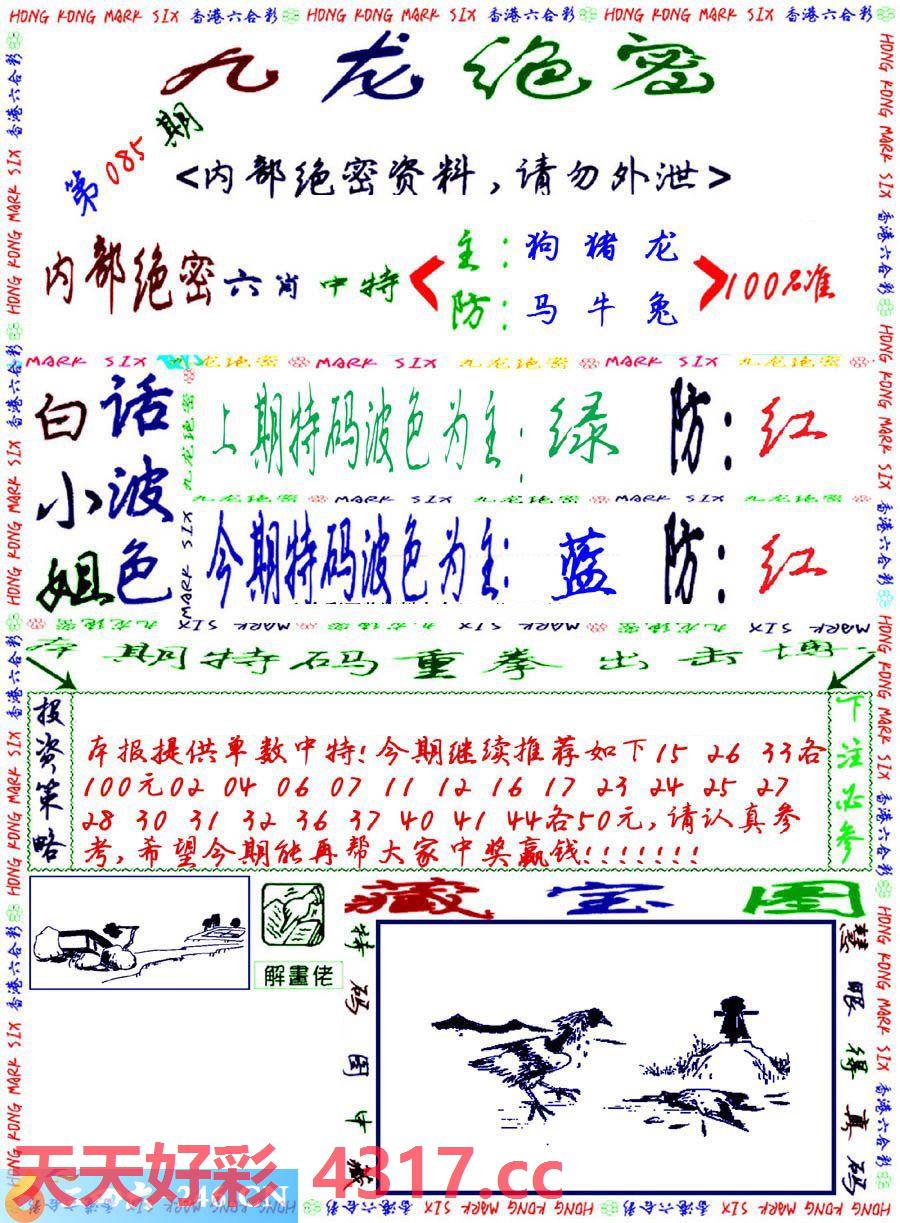 HONG KONG MARK SIX 香港六合彩 HONG KONG MARK SIX 香港六合彩 HONG KONG MARK SIX 香港六合彩
九龙绝密
第085期
<内部绝密资料,请勿外泄>
内部绝密六肖中特
主:狗猪龙
防:马牛兔
100%准
MARK SIX 九龙绝密 MARK SIX 九龙绝密 MARK SIX 九龙绝密
白小姐
话波色
上期特码波色为主:绿 防:红
九龙绝密 MARK SIX 九龙绝密 MARK SIX 九龙绝密
今期特码波色为主:蓝 防:红
本期特码重拳出击博
投资策略
本报提供单数中特!今期继续推荐如下15 26 33各
100元02 04 06 07 11 12 16 17 23 24 25 27
28 30 31 32 36 37 40 41 44各50元,请认真参
考,希望今期能再帮大家中奖赢钱!!!!!!!
下注必参
藏宝图
解畫佬
特码图中藏
慧眼得真码
天天好彩 4317.cc